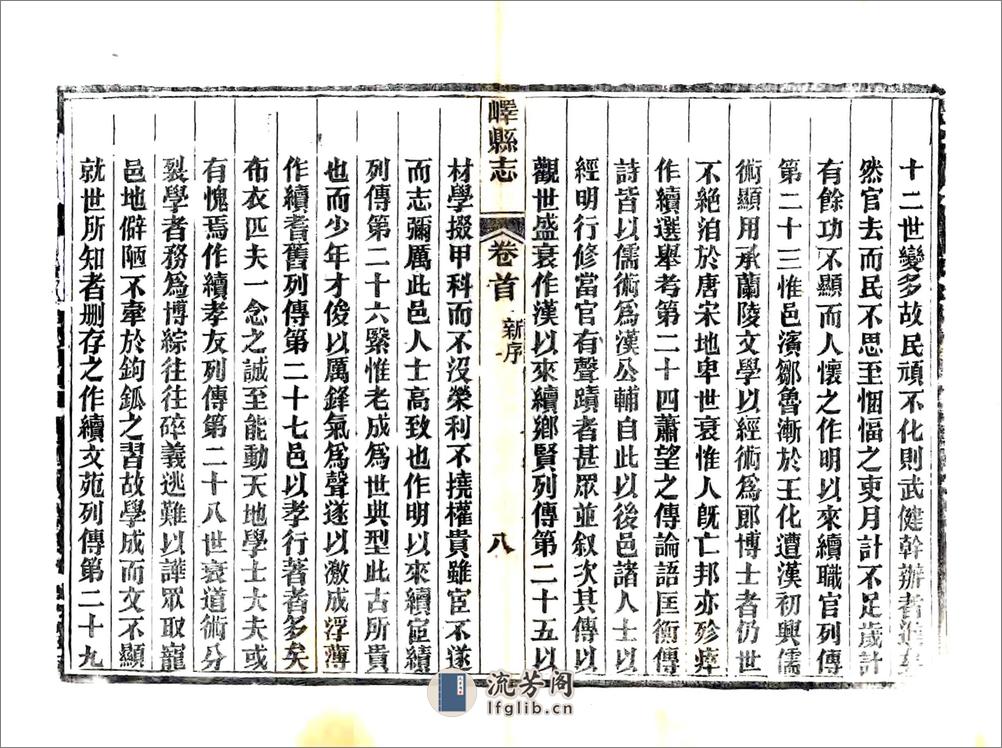 十二世變多故民頑不化則武健幹辦者進矣
然官去而民不思至悃愊之吏月計不足歲計
有餘功不顯而人懷之作明以來續職官列傳
第二十三惟邑濱鄒魯漸於王化遭漢初興儒
術顯用承蘭陵文學以經術為郎博士者仍世
不絕洎於唐宋地卑世衰惟人旣亡邦亦殄瘁
作續選舉考第二十四蕭望之傳論語匡衡傳
詩皆以儒術為漢公輔自此以後邑諸人士以
經明行修當官有聲蹟者甚眾並叙次其傳以
觀世盛衰作漢以來續鄉賢列傳第二十五以
嶧縣志
卷首
新序
八
材學掇甲科而不沒榮利不撓權貴雖宦不遂
而志彌厲此邑人士高致也作明以來續宦績
列傳第二十六緊惟老成為世典型此古所貴
也而少年才俊以厲鋒氣為聲遂以激成浮薄
作續耆舊列傳第二十七邑以孝行著者多矣
布衣匹夫一念之誠至能動天地學士大夫或
有愧焉作續孝友列傳第二十八世衰道術分
裂學者務為博綜往往碎義逃難以譁眾取寵
邑地僻陋不牽於鉤鈲之習故學成而文不顯
就世所知者刪存之作續文苑列傳第二十九
流芳阁
lfglib.cn